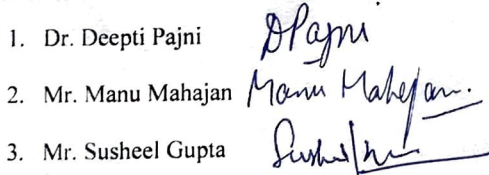 1. Dr. Deepti Pajni DPajni
2. Mr. Manu Mahajan Manu Mahajan.
3. Mr. Susheel Gupta